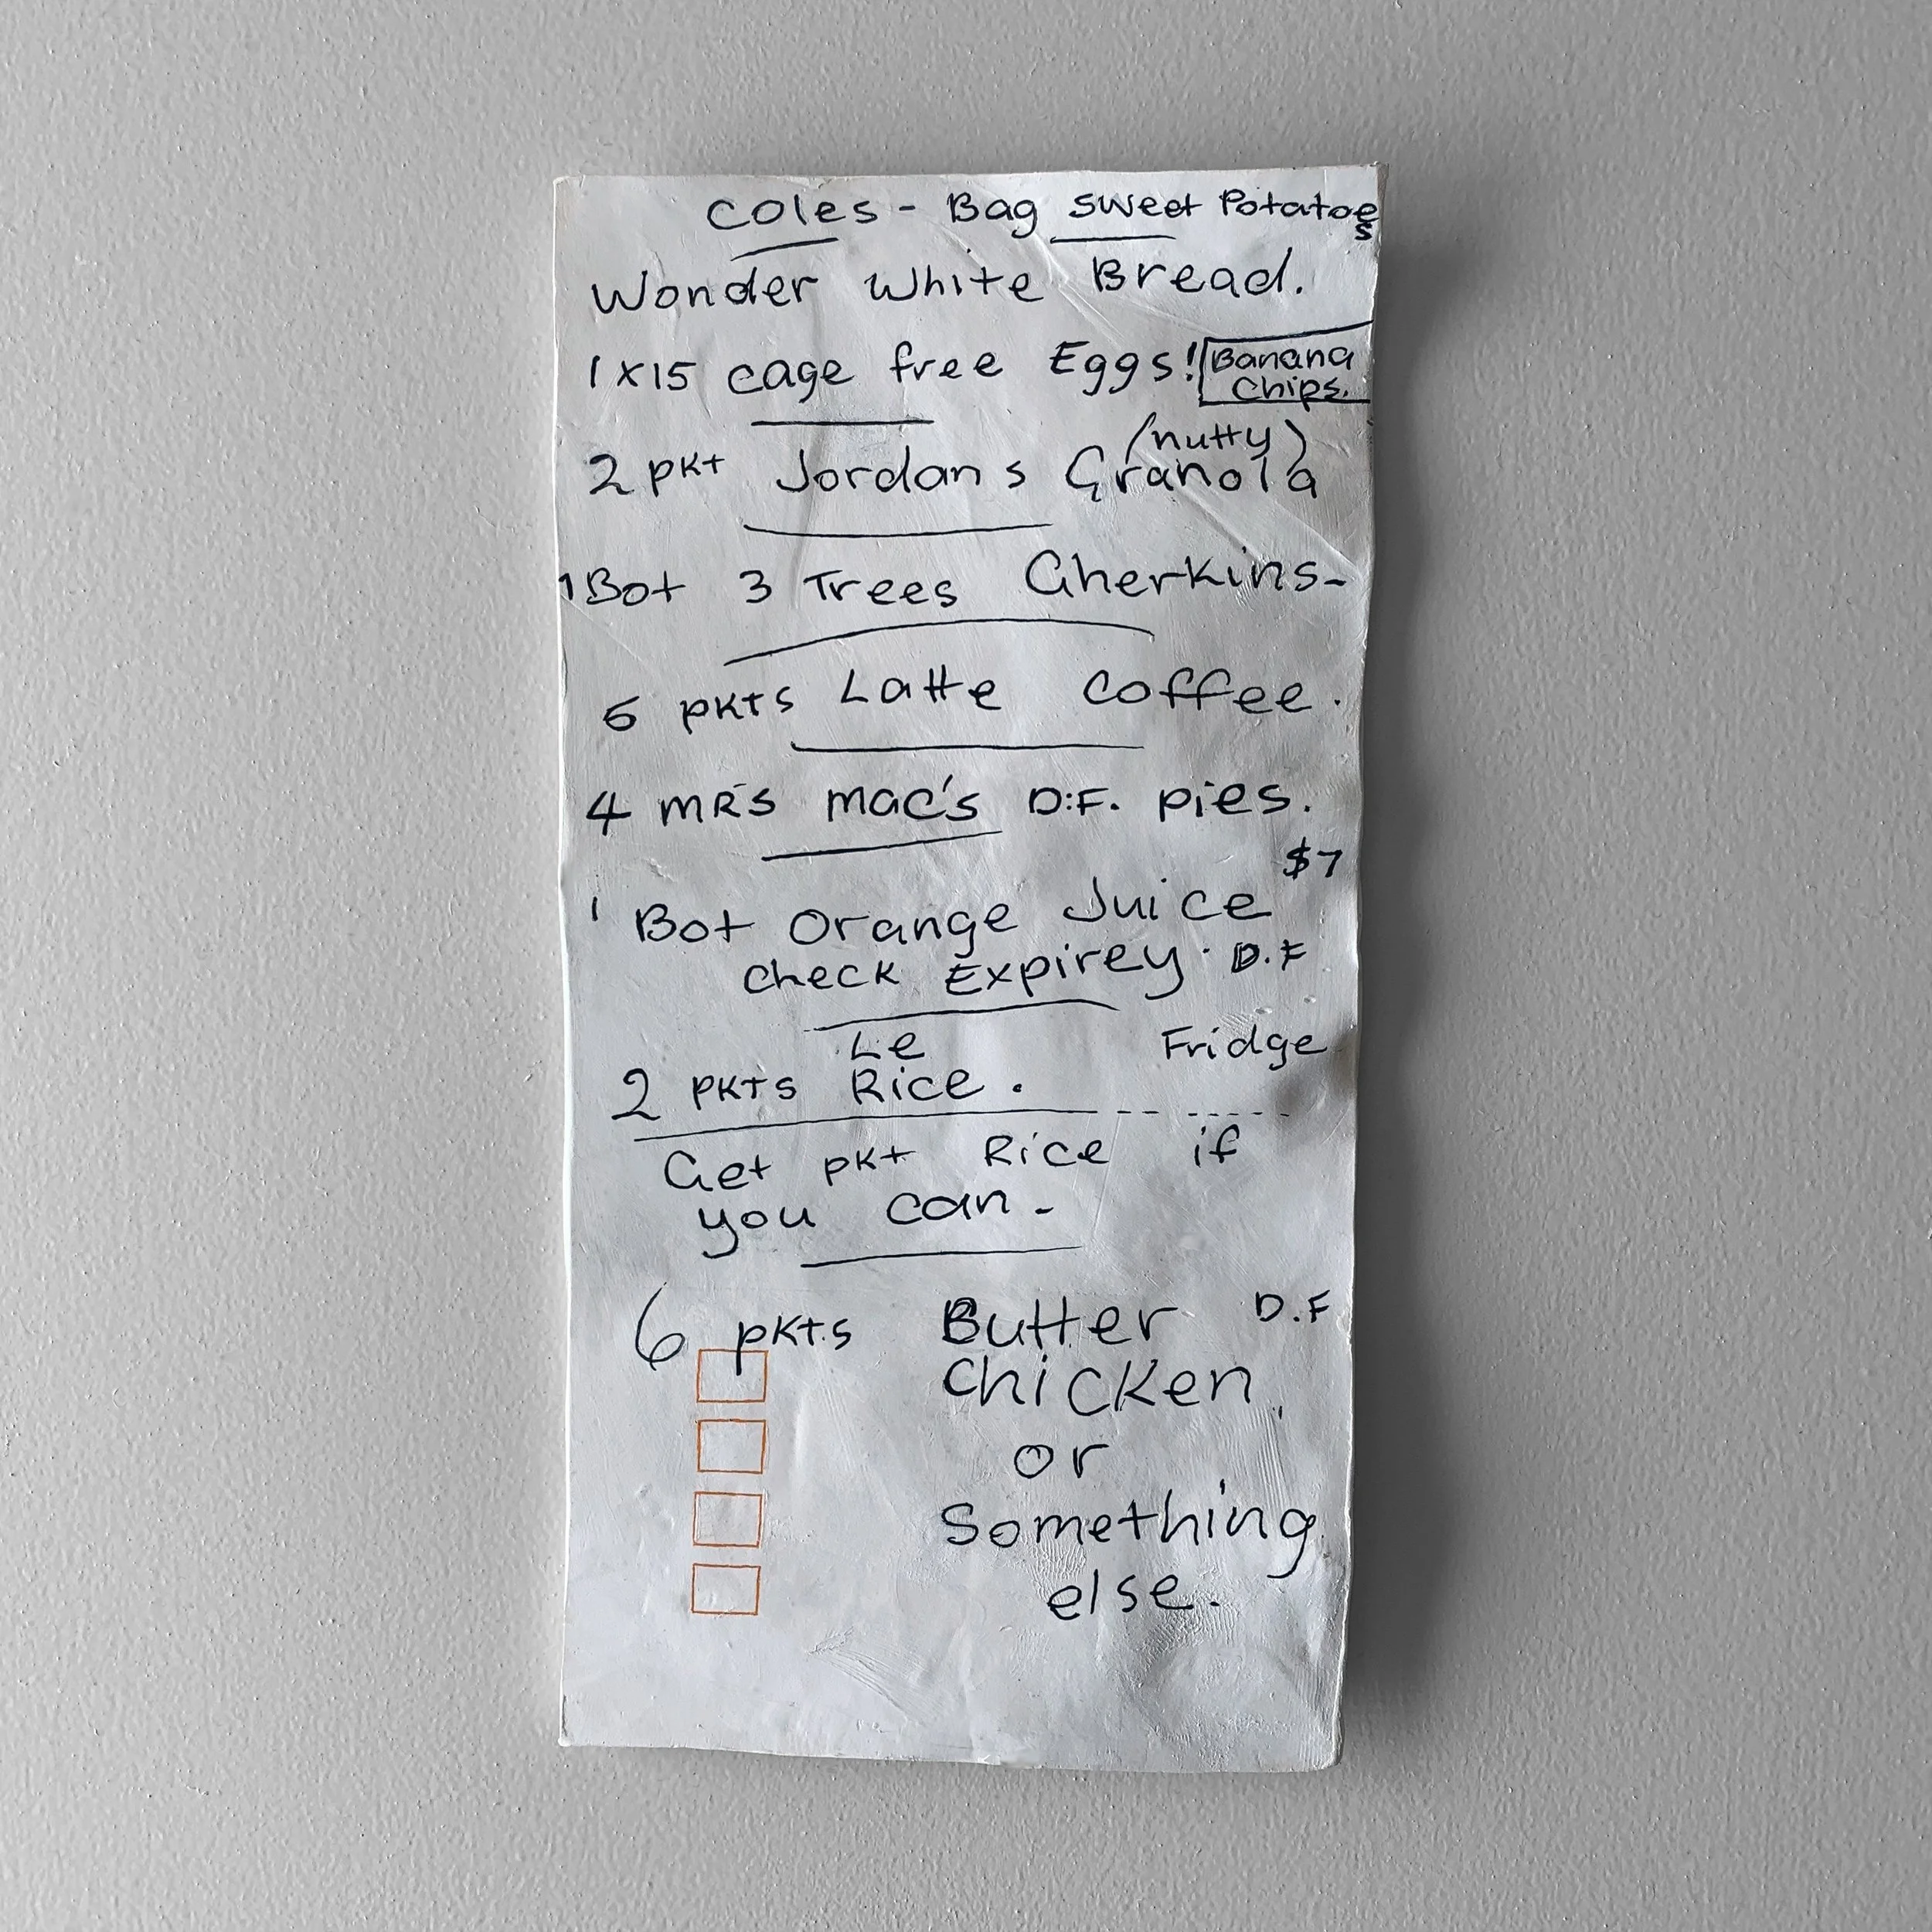 Coles - Bag sweet Potatoes
Wonder White Bread.
1x15 cage free Eggs!
Banana
Chips.
(nutty)
2 pkt Jordans Granola
1 Bot 3 Trees Gherkins-
5 pkts Latte Coffee.
4 MRS Mac's D.F. pies.
$7
1 Bot Orange Juice
Check Expirey. D.F
Le Fridge
2 pkts Rice.
Get pkt Rice if
you can-
6 pkts Butter D.F
Chicken,
or
Something
else.